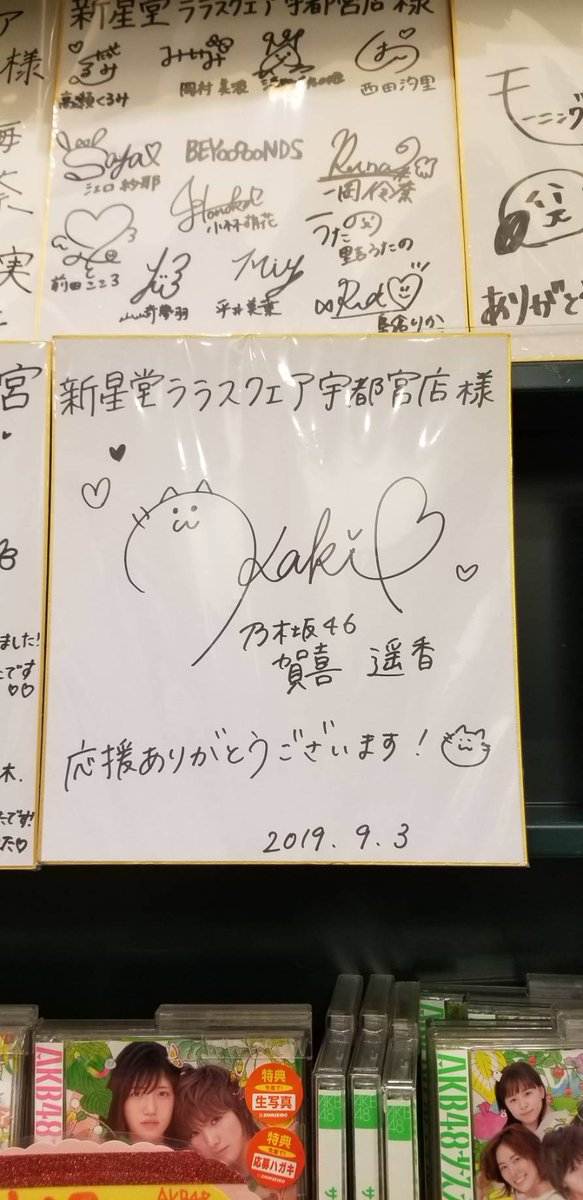 新星堂ララスクェア宇都宮店 様
高瀬くるみ
岡村美波
西田汐里
Saya
江口紗耶
BEYOOOOONDS
一岡伶奈
Honoka
小林萌花
うたの
里吉うたの
前田こころ
山﨑夢羽
Miy
平井美葉
島倉りか
モーニング
ありがと
新星堂ララスクェア宇都宮店様
Kaki
乃木坂46
賀喜 遥香
応援ありがとうございます!
2019.9.3
ました!
です
木.
たです!
AKB48
特典
生写真
SHINSEIDO
特典
応募ハガキ
SHINSEIDO
AKB48
AKB48
AKB48
AKB48 サス